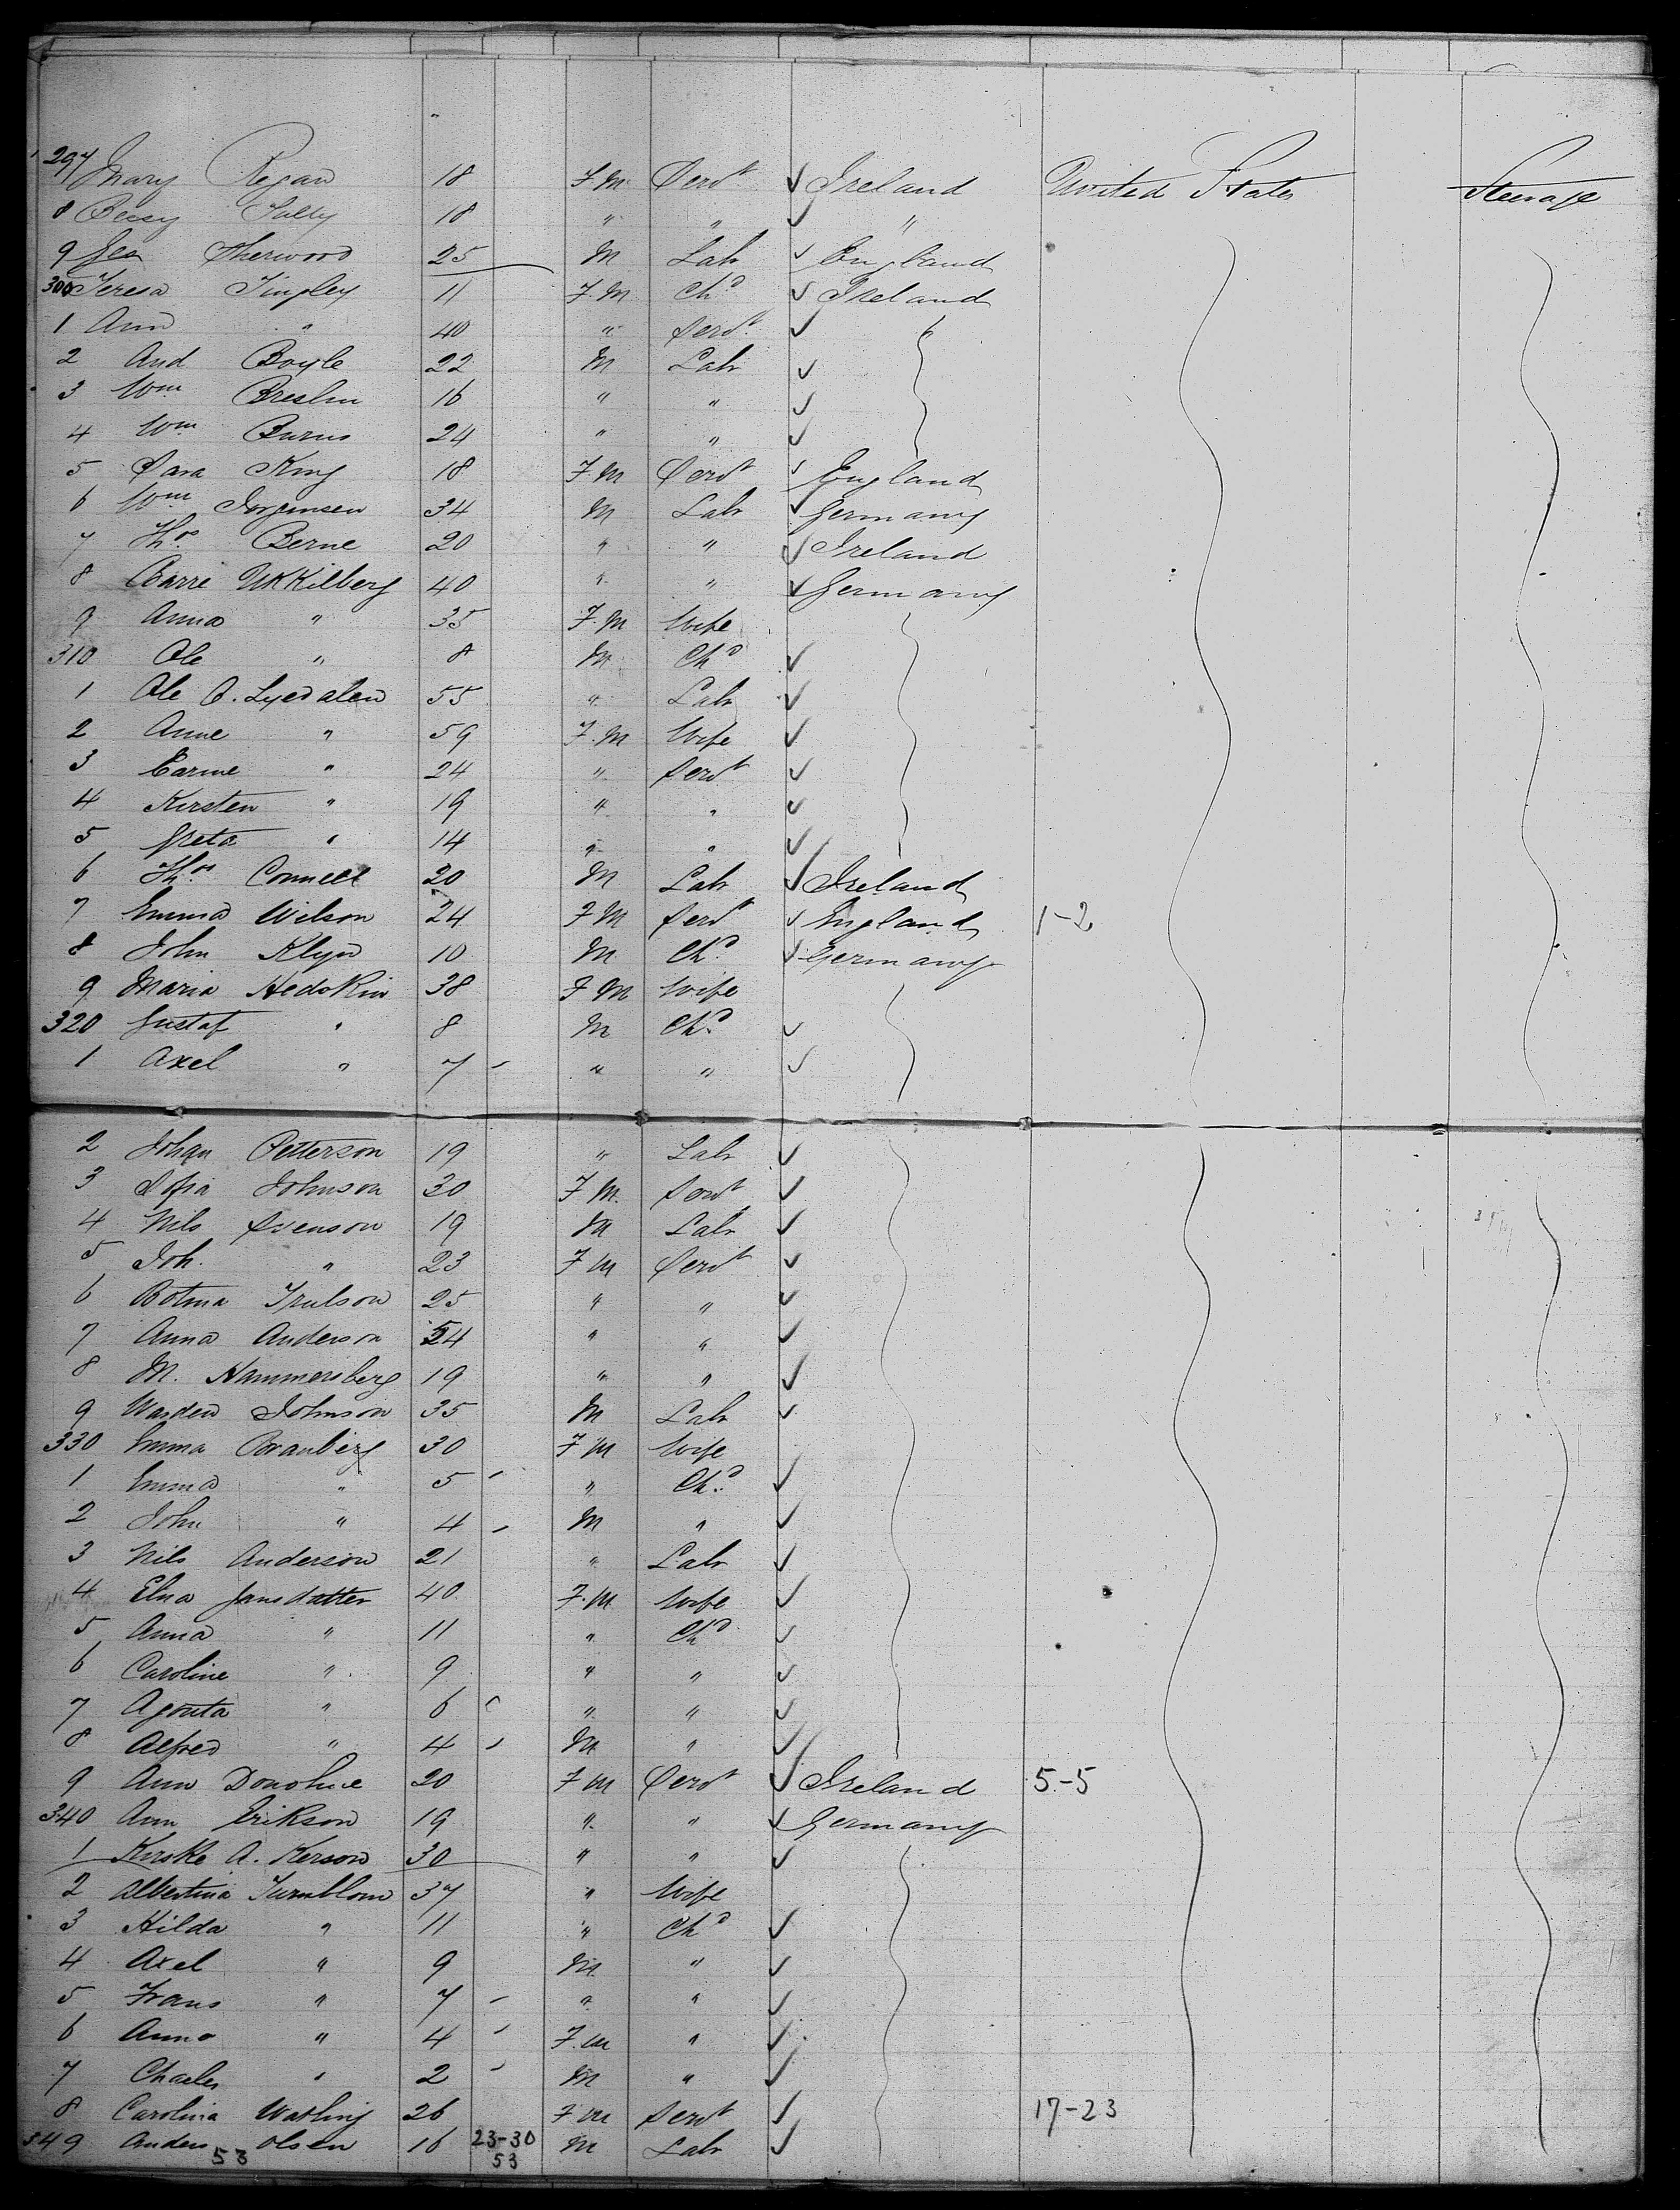 297 Mary Regan 18 F.M. Servt ✓ Ireland United States Steerage
8 Bessy Tully 18 " " ✓ "
9 Geo Sherwood 25 M Labr ✓ England
300 Teresa Tingley 11 F.M Chd ✓ Ireland
1 Ann " 40 " Servt ✓
2 And Boyle 22 M Labr ✓
3 Wm Breslin 16 " " ✓
4 Wm Burns 24 " " ✓
5 Sara King 18 F.M Servt ✓ England
6 Wm Jorgensen 34 M Labr ✓ Germany
7 Thos Berne 20 " " ✓ Ireland
8 40 " " ✓ Germany
9 Anna " 35 F.M Wife
310 Ole " 8 M Chd ✓
1 Ole O. Lyedalen 55 " Labr ✓
2 Anne " 59 F.M Wife ✓
3 Carine " 24 " Servt ✓
4 Kirsten " 19 " " ✓
5 Greta " 14 " " ✓
6 Thos Connell 20 M Labr ✓ Ireland
7 Emma Wilson 24 F M Servt ✓ England 1-2
8 John Klyn 10 M Chd ✓ Germany
9 Maria Hedokin 38 F M Wife
320 Gustaf " 8 M Chd ✓
1 Axel " 7 " " ✓
2 Johan Petterson 19 " Labr ✓
3 Sofia Johnson 30 F M. Servt ✓
4 Nils Svenson 19 M Labr ✓
5 Joh. " 23 F M Servt ✓
6 Botma Trulson 25 " " ✓
7 Anna Anderson 24 " " ✓
8 M. Hammersberg 19 " " ✓
9 Warden Johnson 35 M Labr ✓
330 Emma Branberg 30 F M Wife
1 Emma " 5 " Chd ✓
2 John " 4 M " ✓
3 Nils Anderson 21 " Labr ✓
4 Elna Jansdatter 40 F.M. Wife ✓
5 Anna " 11 " Chd ✓
6 Caroline " 9 " " ✓
7 Agouta " 6 " " ✓
8 Alfred " 4 M " ✓
9 Ann Donohue 20 F M Servt ✓ Ireland 5-5
340 Ann Erikson 19 " " ✓ Germany
1 Kirske A. Kerson 30 " " ✓
2 Albertina Turnblom 37 " Wife
3 Hilda " 11 " Chd ✓
4 Axel " 9 M. " ✓
5 Frans " 7 " " ✓
6 Anna " 4 F.M " ✓
7 Charles " 2 M " ✓
8 Carolina Watling 26 F M Servt ✓ 17-23
349 Anders Olsen 16 23-30 M Labr ✓
53 53